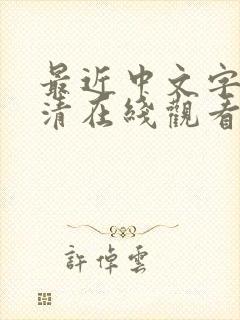 最近中文字
清在綫觀看
許倬雲